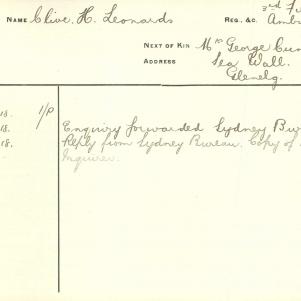 NAME Clive. H. Leonards
REG. &C. 3rd
NEXT OF KIN Mr George
ADDRESS Sea Wall.
Glenelg.
18. 1/P Enquiry forwarded Sydney
18. Reply from Sydney Bureau. Copy of
18. Inquirer.